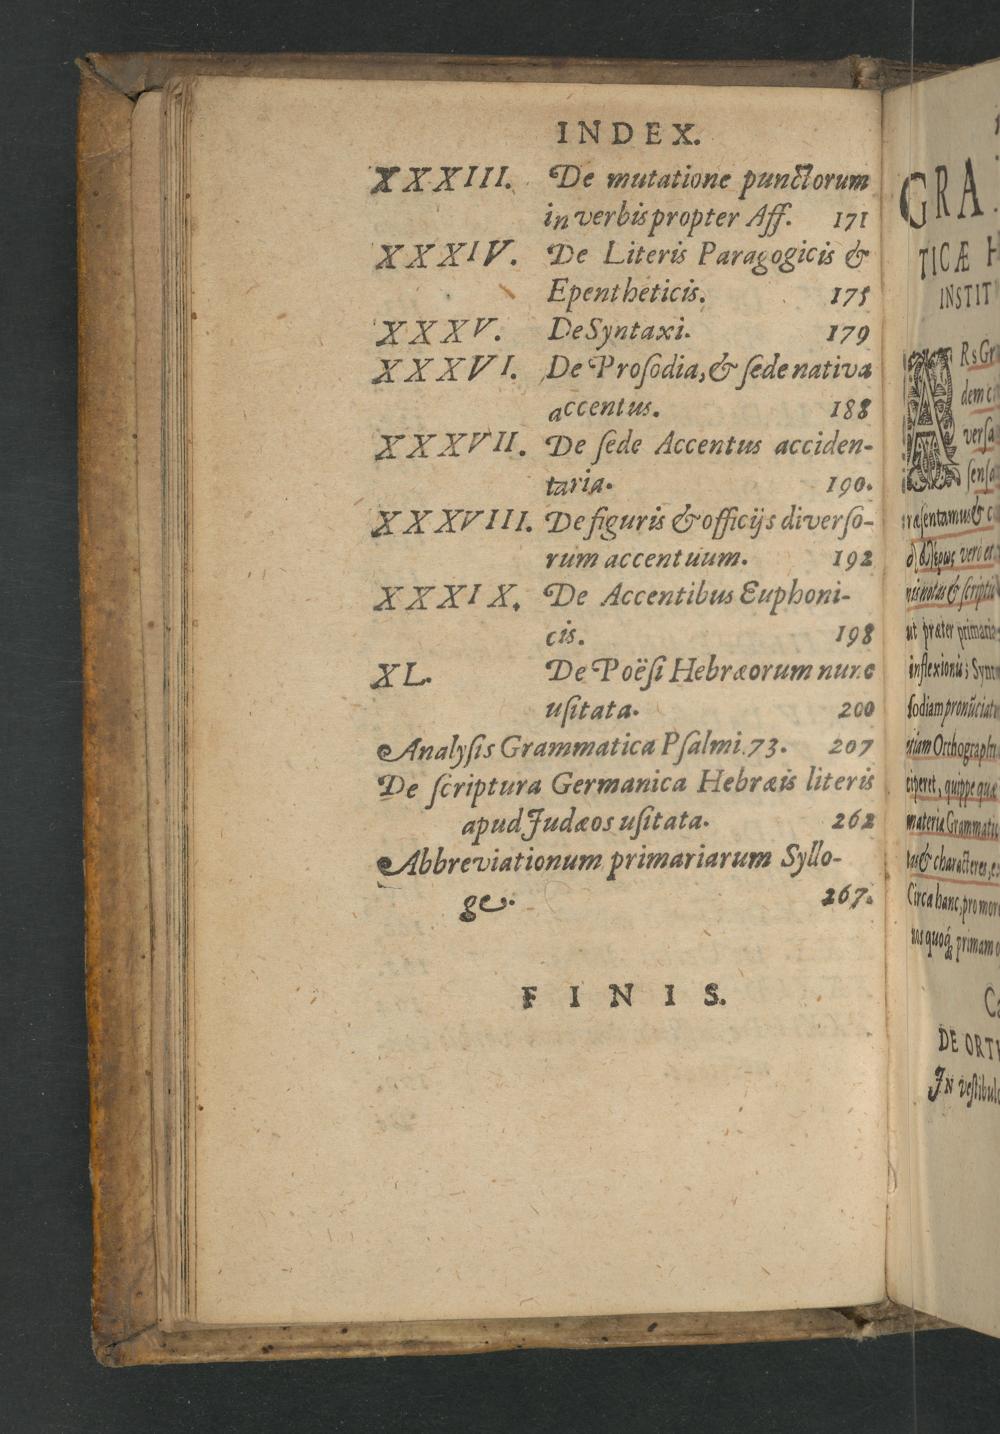 INDEX.
XXXIII. De mutatione punctorum
in verbis propter Aff. 171
XXXIV. De Literis Paragogicis &
Epentheticis. 175
XXXV. De Syntaxi. 179
XXXVI. De Proſodia, & ſede nativa
accentus. 188
XXXVII. De ſede Accentus acciden-
taria. 190.
XXXVIII. De figuris & officijs diverſo-
rum accentuum. 192
XXXIX. De Accentibus Euphoni-
cis. 198
XL. De Poëſi Hebræorum nunc
uſitata. 200
Analyſis Grammatica Pſalmi. 73. 207
De ſcriptura Germanica Hebræis literis
apud Judæos uſitata. 262
Abbreviationum primariarum Syllo-
ge. 267.
FINIS.
GRA
TICÆ H
INSTIT
ARs Gr
dem
verſa
ſenſa
ræſentamus &
vero et
nis notas & ſcriptu
ut præter primaria
inflexionis; Synt
ſodiam pronũciat
etiam Orthograph
ciperet, quippe quæ
materia Grammatic
tas & characteres, e
Circa hanc, pro mor
nos quoq; primam
Ca
DE ORTH
IN veſtibul